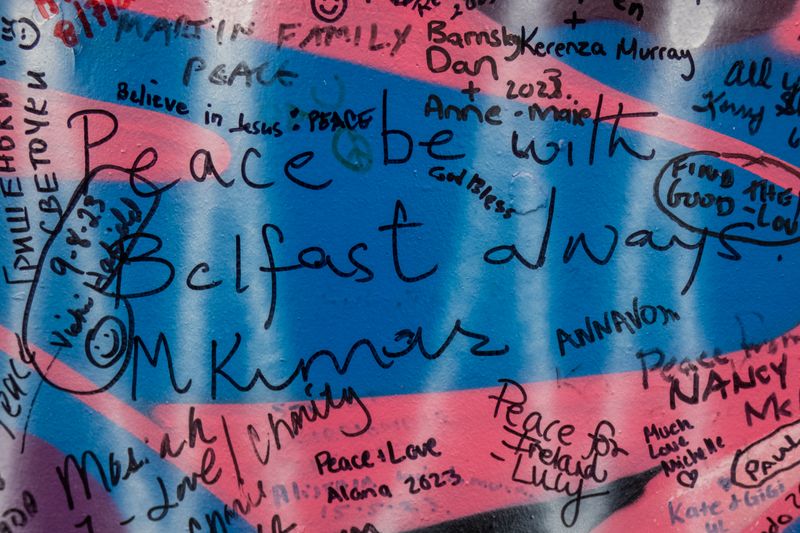 MARTIN FAMILY
PEACE
Barnsley
Dan
+ 2023.
Anne-marie
+
Kerenza Murray
All
Believe in Jesus : PEACE
ГРИШЕНЬКИ
СВЕТОЧКИ
Peace be with
Belfast always.
MKumar
God Bless
FIND THE
GOOD - LOV
9-8-23
Vicki
ANNAVON
Peace from
NANCY
Mc
Peace
Mosiah
Love / Charity
Peace + Love
Alana 2023
15.5.23
Peace for
- Ireland
- Lucy
Much
Love
Michelle
PAUL
Kate & GiGi